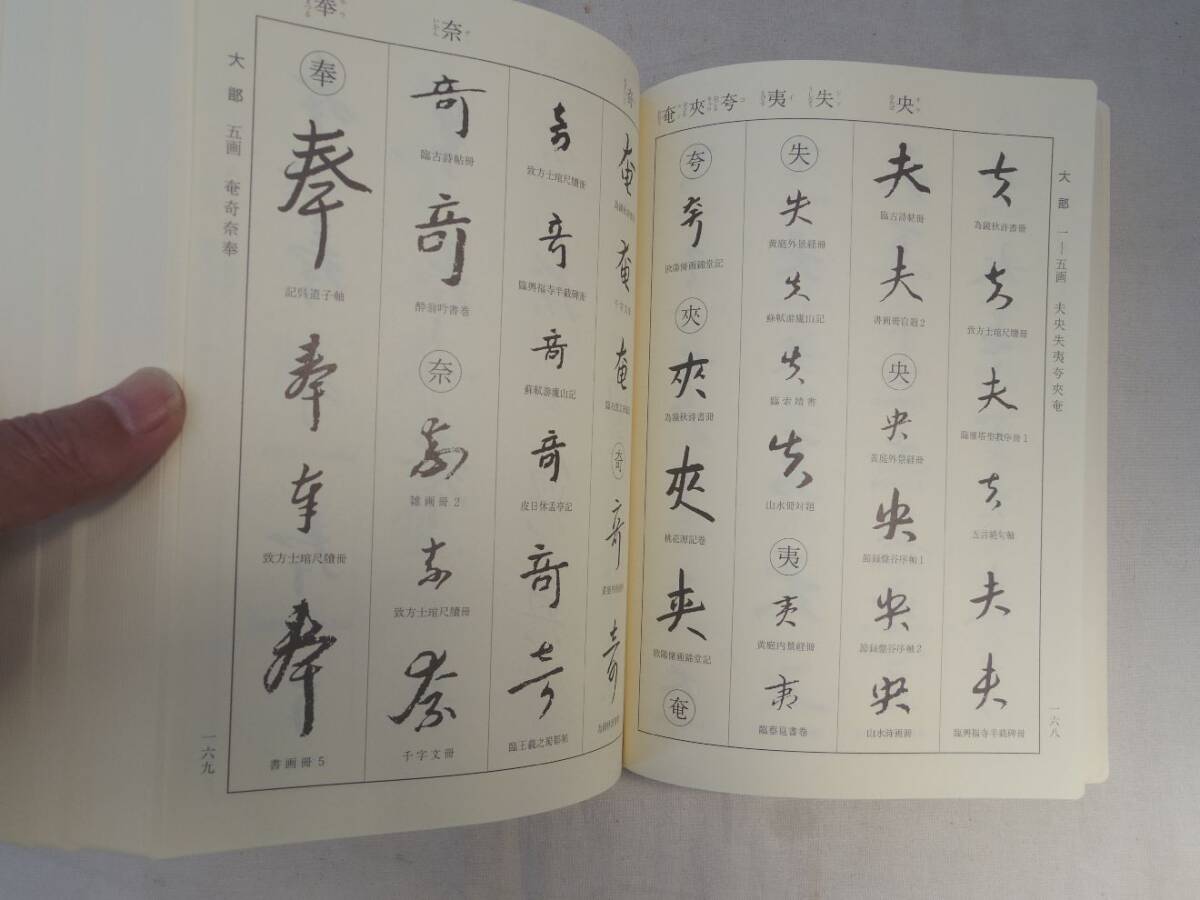 央
失
夷
夸
夾
奄
大部 一―五画 夫央失夷夸夾奄
一六八
夫
為鏡秋詩書冊
夫
致方士琯尺牘冊
夫
臨雁塔聖教序冊1
夫
五言絶句軸
夫
夫
臨興福寺半截碑冊
夫
臨古詩帖冊
夫
書画冊自題2
央
央
黄庭外景経冊
央
節録盤谷序軸1
央
節録盤谷序軸2
央
山水詩画冊
失
失
黄庭外景経冊
失
蘇軾游廬山記
失
臨索靖書
失
山水冊対題
夷
夷
黄庭内景経冊
夷
臨蔡襄書巻
夸
夸
欧陽脩画錦堂記
夾
夾
為鏡秋詩書冊
夾
桃花源記巻
夾
欧陽脩画錦堂記
奄
奇
奈
奉
奄
奄
千字文冊
奄
奇
奇
奇
奇
致方士琯尺牘冊
奇
臨興福寺半截碑冊
奇
蘇軾游廬山記
奇
皮日休孟亭記
奇
奇
臨王羲之蜀都帖
奇
臨古詩帖冊
奇
酔翁吟書巻
奈
奈
雑画冊2
奈
致方士琯尺牘冊
奈
千字文冊
奉
奉
記呉道子軸
奉
奉
致方士琯尺牘冊
奉
書画冊5
大部 五画 奄奇奈奉
一六九